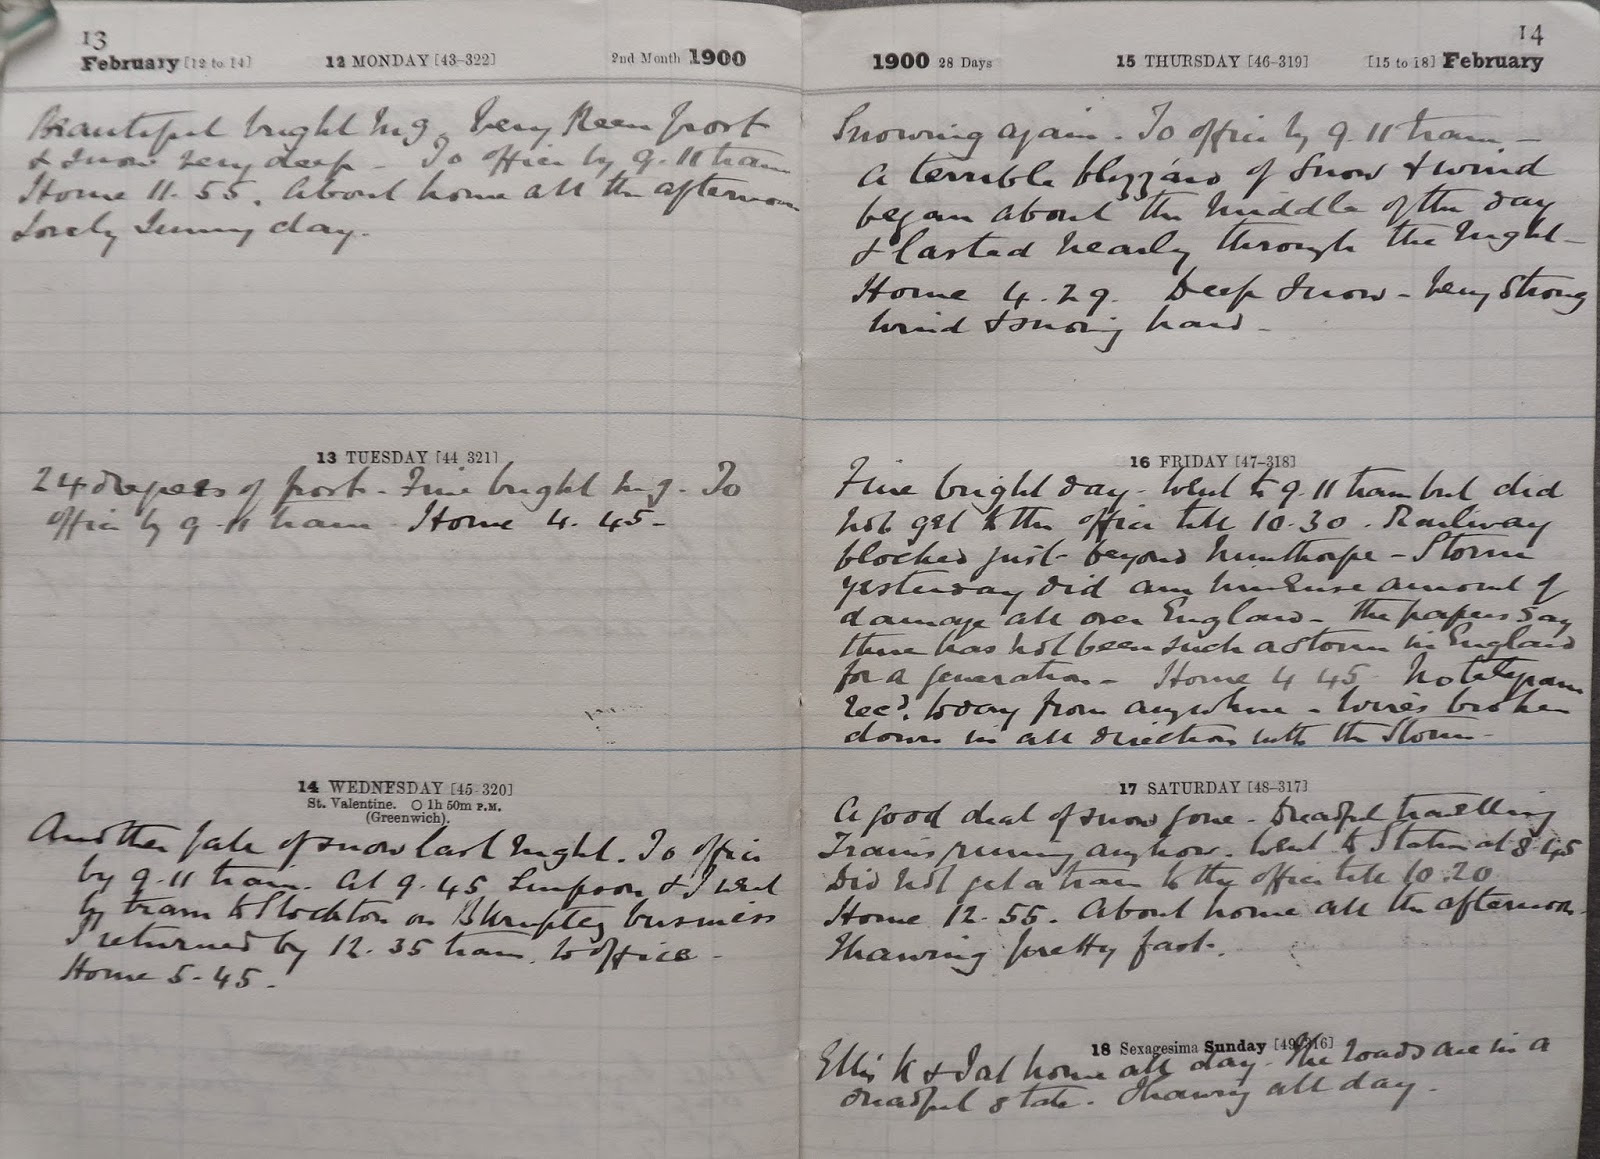 13
February [12 to 14] 12 MONDAY [43-322] 2nd Month 1900
Beautiful bright mg. Very Keen frost
& snow very deep - To office by 9.11 train
Home 11.55. About home all the afternoon
Lovely Sunny day.
13 TUESDAY [44 321]
24 degrees of frost - Fine bright mg - To
office by 9-11 train - Home 4.45-
14 WEDNESDAY [45-320]
St. Valentine. O 1h 50m P.M.
(Greenwich).
Another fall of snow last night. To office
by 9.11 train. At 9.45 Simpson & I went
by train to Stockton on Bkruptcy business
I returned by 12.35 train, to office -
Home 5-45.
14
1900 28 Days 15 THURSDAY [46-319] [15 to 18] February
Snowing again - To office by 9.11 train -
A terrible blizzard of snow & wind
began about the middle of the day
& lasted nearly through the night -
Home 4.29. Deep snow - Very strong
wind & snowing hard -
16 FRIDAY [47-318]
Fine bright day - Went to 9.11 train but did
not get to the office till 10.30. Railway
blocked just beyond Nunthorpe - Storm
yesterday did an immense amount of
damage all over England - the papers say
there has not been such a storm in England
for a generation - Home 4 45 No telegram
recd. today from anywhere - wires broken
down in all directions with the Storm -
17 SATURDAY [48-317]
A good deal of snow gone - Dreadful travelling
Trains running anyhow. Went to Station at 8.45
Did not get a train to the office till 10.20
Home 12.55. About home all the afternoon -
Thawing pretty fast.
18 Sexagesima Sunday [49-316]
Ellis K & I at home all day - The roads are in a
dreadful state. Thawing all day.